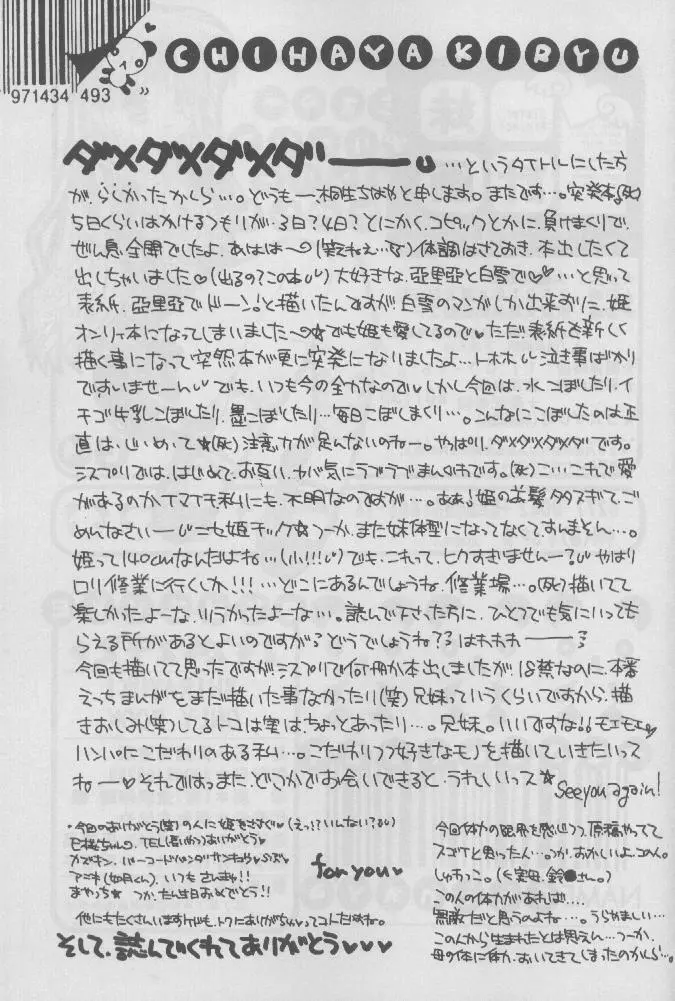 CHIHAYA KIRYU
971434 493
ダメダメダメダーー。…というタイトルにした方
が、らしかったかしら…。どうもー、桐生ちはやと申します。またです…。突発本(死)
5日くらいはかけるつもりが、3日?4日?とにかく、コピックとかに、負けまくりで、
ぜん息全開でしたよ、あはは〜(笑えねえ…死)体調はさておき、本出したくて
出しちゃいました♡(出るの?この本)大好きな、亞里亞と白雪で♡♡…と思って
表紙、亞里亞でドーン!と描いたんですが白雪のマンガしか出来ずに、姫
オンリー本になってしまいました〜☆でも姫も愛してるので♥ただ表紙を新しく
描く事になって突然本が更に突発になりましたよ…トホホ 泣き事ばかり
ですいませーん でも、いつも今の全力なので♥しかし今回は、水こぼしたり、イ
チゴ牛乳こぼしたり、墨こぼしたり…毎日こぼしまくり…。こんなにこぼしたのは正
直は、じいめて★(死)注意力が足んないのねー。やっぱり、ダメダメダメダです。
シスプリでは、はじめて、お互い、ヤバ気にラブラブまんがです。(死)こ…これで愛
があるのかイマイチ、私にも、不明なのですが…。ああ!姫のお髪タクスギて、ご
めんなさいー ニセ姫チック☆つーか、また妹体型になってなくて、すいません…。
姫って140cmなんだよね…(小!!!)でも、これって、ヒクすぎいませんー? やはり
ロリ修業に行くしか!!!…どこにあるんでしょうね、修業場…。(死)描いてて
楽しかったよーな、ツラかったよーな…。読んで下さった方に、ひとつでも気にいっても
らえる所があるとよいのですが?どうでしょうね??はわわわーー
今回も描いてて思ったですが、シスプリで何冊か本出しましたが、18禁なのに、本番
えっちまんがをまだ描いた事なかったり(笑)兄妹っていうくらいですから、描
きおしみ(笑)してるトコは実は、ちょっとあったり…。兄妹。いいですな!!モエモエ♥
ハンパにこだわりのある私…。こだわりつつ好きなモノを描いていきたいっス
ねー♥それではっまた、どこかでお会いできると、うれしいっス★
See you again!
・今回のありがとう(笑)の人に姫をささぐ♥(えっ?いんない?)
TEL(長いやつ)ありがとう♥
カズキン、バーコード
アニキ(如月くん)、いつもさんきゅ!!
まやっち★ つか、たんじょおめでとう!!
for you♥
他にもたくさんいますケド、トクにありがちゅってコトだよね。
そして、読んでくれてありがとう♥♥♥
今回体力の限界を感じつつ、原稿やってて
スゴイと思った人…つか、おかしいよ、コの人。
しゅわっこ。(を実母、鈴●さん。)
この人の体力があれば…
無敵だと思うのよね…。うらやましい…
この人から生まれたとは思えん…つーか、
母の体に体力、おいてきてしまったのかしら…。